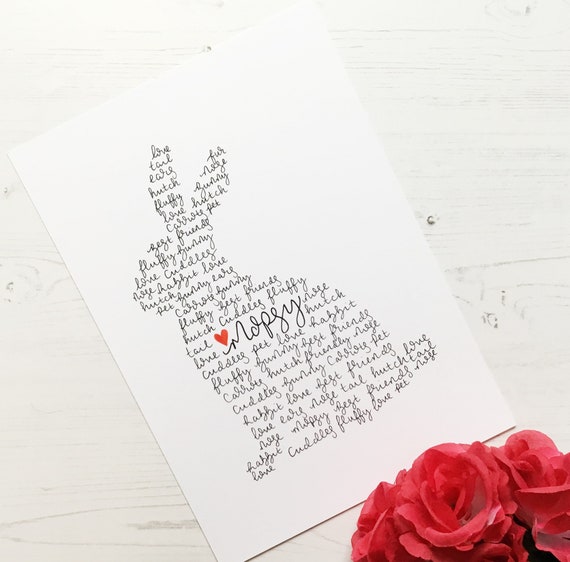 love
tail
ears
hutch
fluffy
fur
nose
bunny
love hutch
carrots pet
best friends
fluffy bunny
love cuddles
nose rabbit love
hutch bunny ears
pet carrots bunny
fluffy best friends
hutch cuddles fluffy
tail Mopsy nose
love hutch
cuddles pet love rabbit
fluffy bunny best friends
carrots hutch friendly nose
cuddles bunny carrots pet
rabbit love best friends
love ears nose tail hutch tail love
nose mopsy best friends nose
rabbit cuddles fluffy love pet
love